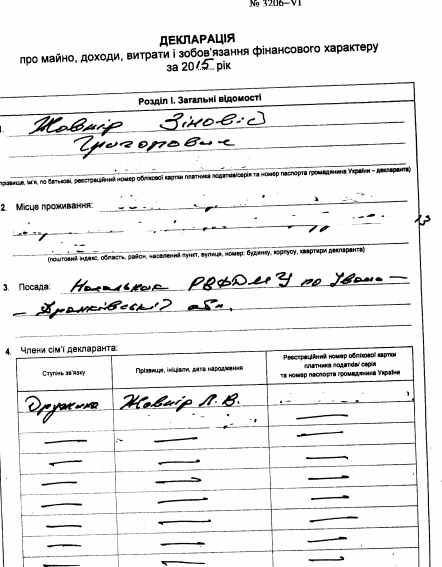 № 3206–VI
ДЕКЛАРАЦІЯ
про майно, доходи, витрати і зобов’язання фінансового характеру
за 2015 рік
Розділ I. Загальні відомості
1. Жовнір Зіновій
Григорович
(прізвище, ім'я, по батькові, реєстраційний номер облікової картки платника податків/серія та номер паспорта громадянина України – декларанта)
2. Місце проживання:
13
(поштовий індекс, область, район, населений пункт, вулиця, номер: будинку, корпусу, квартири декларанта)
3. Посада: Начальник РВФДМУ по Івано–
– Франківській обл.
4. Члени сім’ї декларанта:
Ступінь зв'язку
Прізвище, ініціали, дата народження
Реєстраційний номер облікової картки
платника податків/ серія
та номер паспорта громадянина України
Дружина Жовнір Л. В.